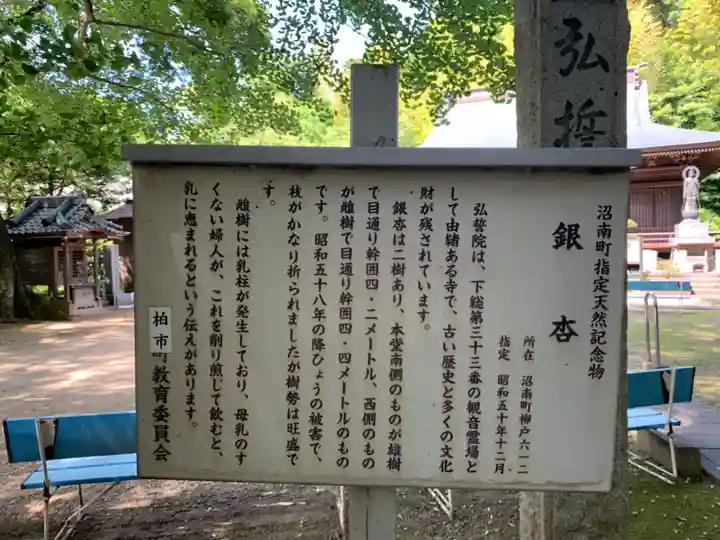 弘誓
沼南町指定天然記念物
銀杏
所在 沼南町柳戸六一二
指定 昭和五十年十二月
弘誓院は、下総第三十三番の観音霊場と
して由緒ある寺で、古い歴史と多くの文化
財が残されています。
銀杏は二樹あり、本堂南側のものが雄樹
で目通り幹囲四・二メートル、西側のもの
が雌樹で目通り幹囲四・四メートルのもの
です。昭和五十八年の降ひょうの被害で、
枝がかなり折られましたが樹勢は旺盛で
す。
雌樹には乳柱が発生しており、母乳のす
くない婦人が、これを削り煎じて飲むと、
乳に恵まれるという伝えがあります。
柏市
町教育委員会